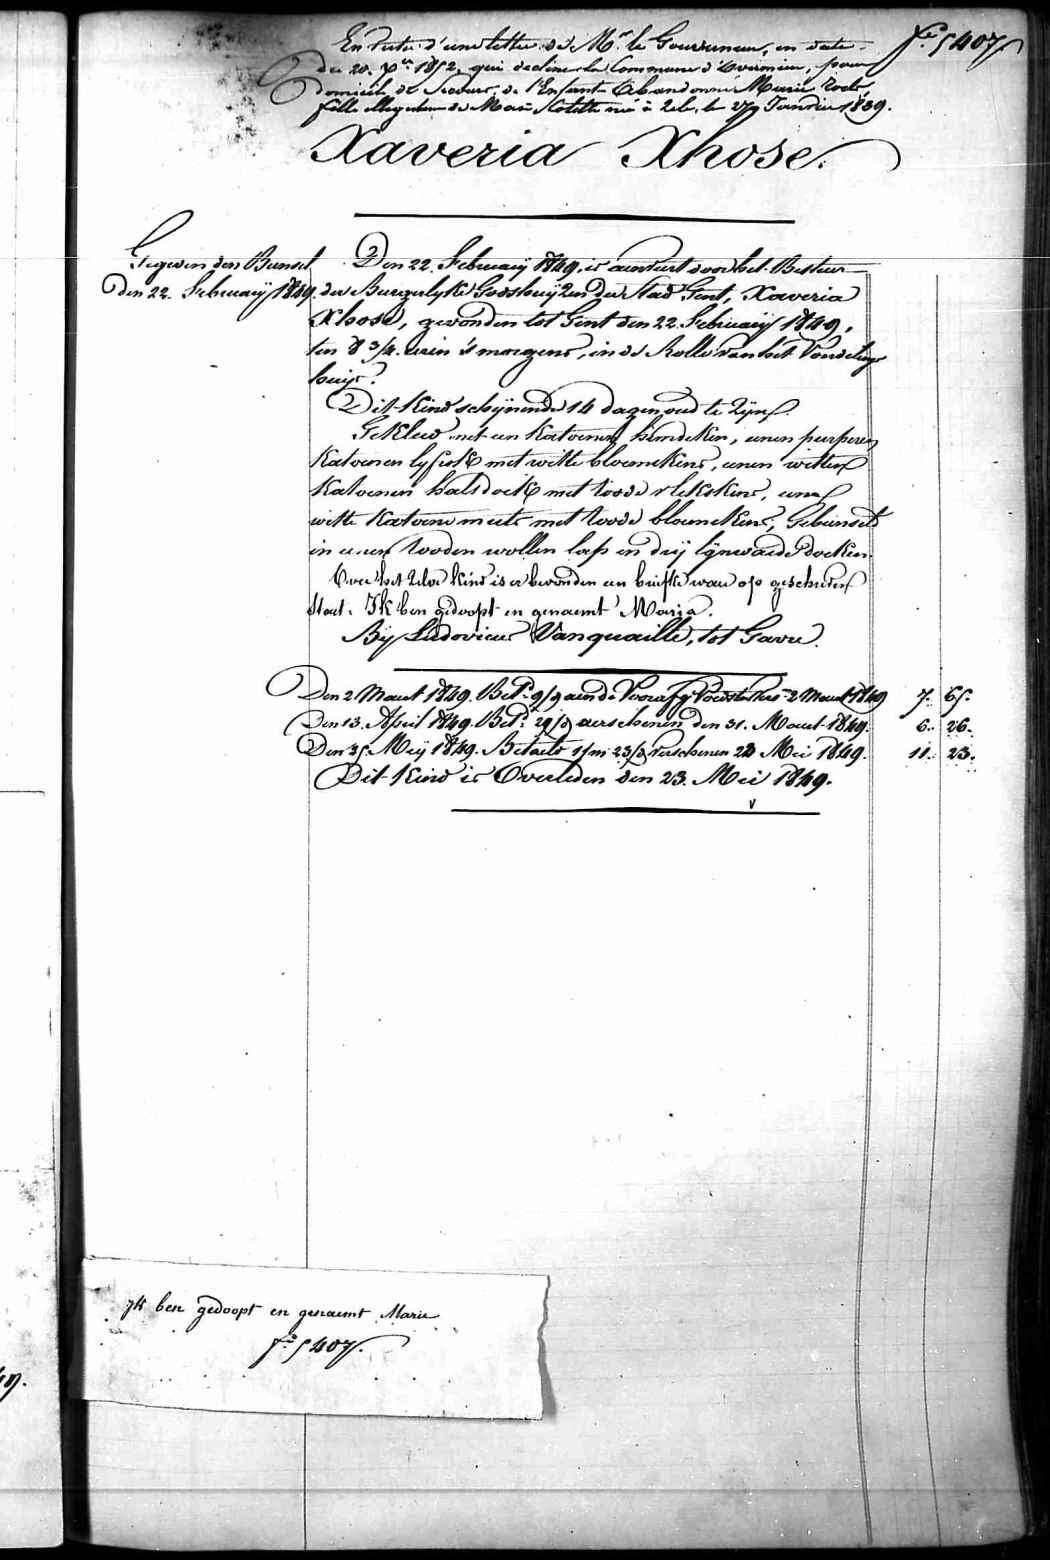 En suite d'une lettre de Mr. le Gouverneur, en date
du 20. 7bre 1852, qui decline la Commune d' pour
domicile de Secours, de l'Enfant Abandonné Marie
fille illegitime de née à le 27 Janvier 1839.
fo. 5407
Xaveria Xhose.
Gegeven den Bunsel
den 22. Februarij 1849.
Den 22. Februarij 1849, is aenveert door het Bestuer
der Burgerlyke Godshuijzen der Stad Gent, Xaveria
Xhose, gevonden tot Gent den 22. Februarij 1849,
ten 8 3/4. uren 's morgens, in de Rolle van het Vondeling
huijs.
Dit Kind schijnende 14 dagen oud te Zijn.
Gekleed met een Katoenen hemdeken, eenen purperen
Katoenen lyfrok met witte bloemekens, eenen witten
Katoenen halsdoek met roode vlekskens, eene
witte Katoene muts met roode bloemekens, Gebunseld
in eenen rooden wollen lap en drij lijnwaede doeken.
Over het zelve Kind is er bevonden een briefke waer op geschreven
staet: Ik ben gedoopt en genaemt Maria.
Bij Ludovicus Vanquaille, tot Gavre.
Den 2 Maert 1849. Bet. 9/9 aen de 2 Maert 1849 7. 65.
Den 13. April 1849. Bet. 29/3 verschenen den 31. Maert 1849. 6. 26.
Den 31 Meij 1849. Betaeld 1/m 23/3 verschenen 23 Mei 1849. 11. 23.
Dit Kind is Overleden den 23. Mei 1849.
ik ben gedoopt en genaemt Marie
fo. 5407.